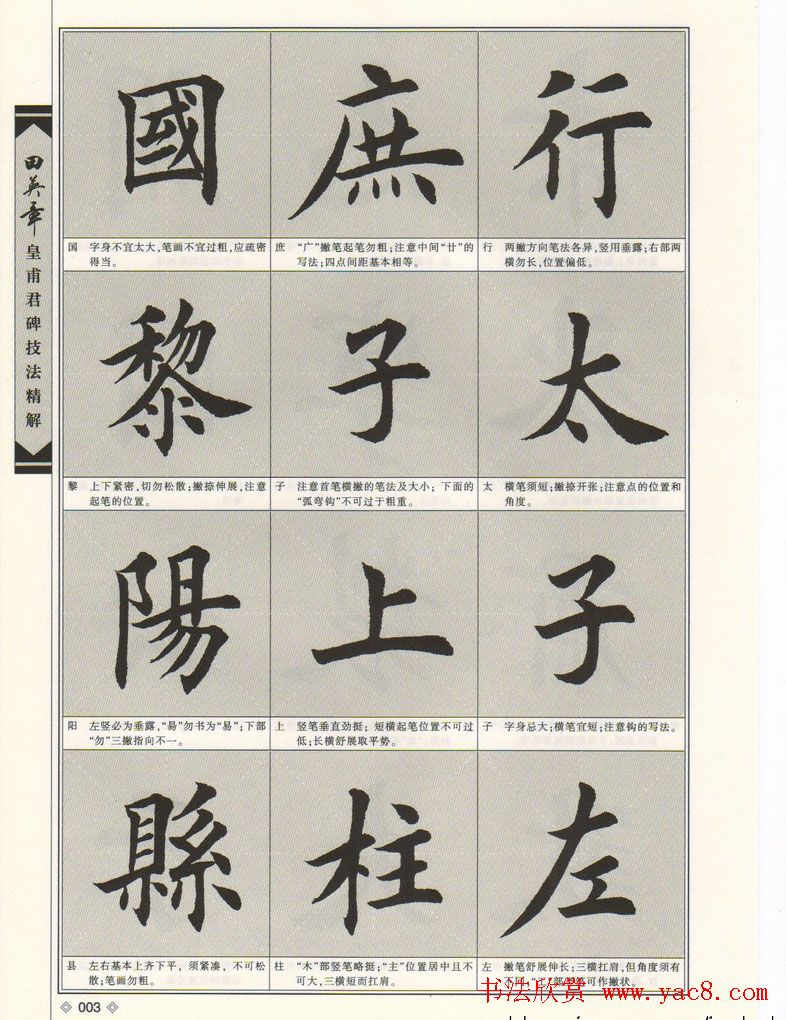 田英章
皇甫君碑技法精解
行
行 两撇方向笔法各异,竖用垂露;右部两
横勿长,位置偏低。
太
太 横笔须短;撇捺开张;注意点的位置和
角度。
子
子 字身忌大;横笔宜短;注意钩的写法。
左
左 撇笔舒展伸长;三横扛肩,但角度须有
不同,“工”部竖笔可作撇状。
庶
庶 “广”撇笔起笔勿粗;注意中间“廿”的
写法;四点间距基本相等。
子
子 注意首笔横撇的笔法及大小;下面的
“弧弯钩”不可过于粗重。
上
上 竖笔垂直劲挺;短横起笔位置不可过
低;长横舒展取平势。
柱
柱 “木”部竖笔略挺;“主”位置居中且不
可大,三横短而扛肩。
國
国 字身不宜太大,笔画不宜过粗,应疏密
得当。
黎
黎 上下紧密,切勿松散;撇捺伸展,注意
起笔的位置。
陽
阳 左竖必为垂露,“昜”勿书为“易”;下部
“勿”三撇指向不一。
縣
县 左右基本上齐下平,须紧凑,不可松
散;笔画勿粗。
003
书法欣赏 www.yac8.com